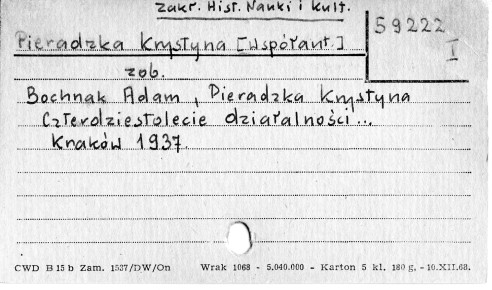 Zakł. Hist. Nauki i Kult.
59222
I
Pieradzka Krystyna [współaut.]
zob.
Bochnak Adam, Pieradzka Krystyna
Czterdziestolecie działalności...
Kraków 1937.
CWD B 15 b Zam. 1537/DW/On Wrak 1068 - 5.040.000 - Karton 5 kl. 180 g. - 10.XII.68.